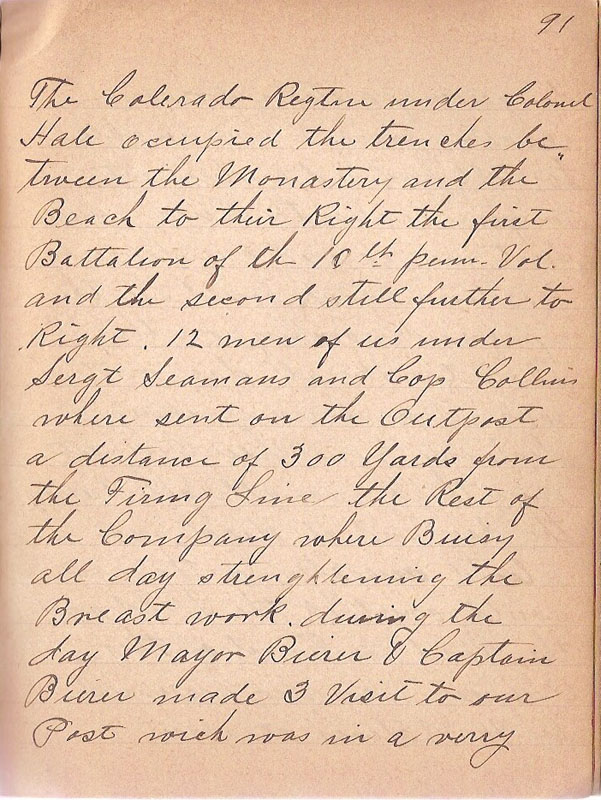 91
The Colerado Regtm under Colonel
Hale occupied the trenches be"
tween the Monastery and the
Beach to their Right the first
Battalion of th 10th penn. Vol.
and the second still further to
Right. 12 men of us under
Sergt Seamans and Cop Collins
where sent on the Outpost
a distance of 300 Yards from
the Firing Line the Rest of
the Company where Buisy
all day strenghtening the
Breast work. during the
day Mayor Bierer & Captain
Bierer made 3 Visit to our
Post wich was in a verry